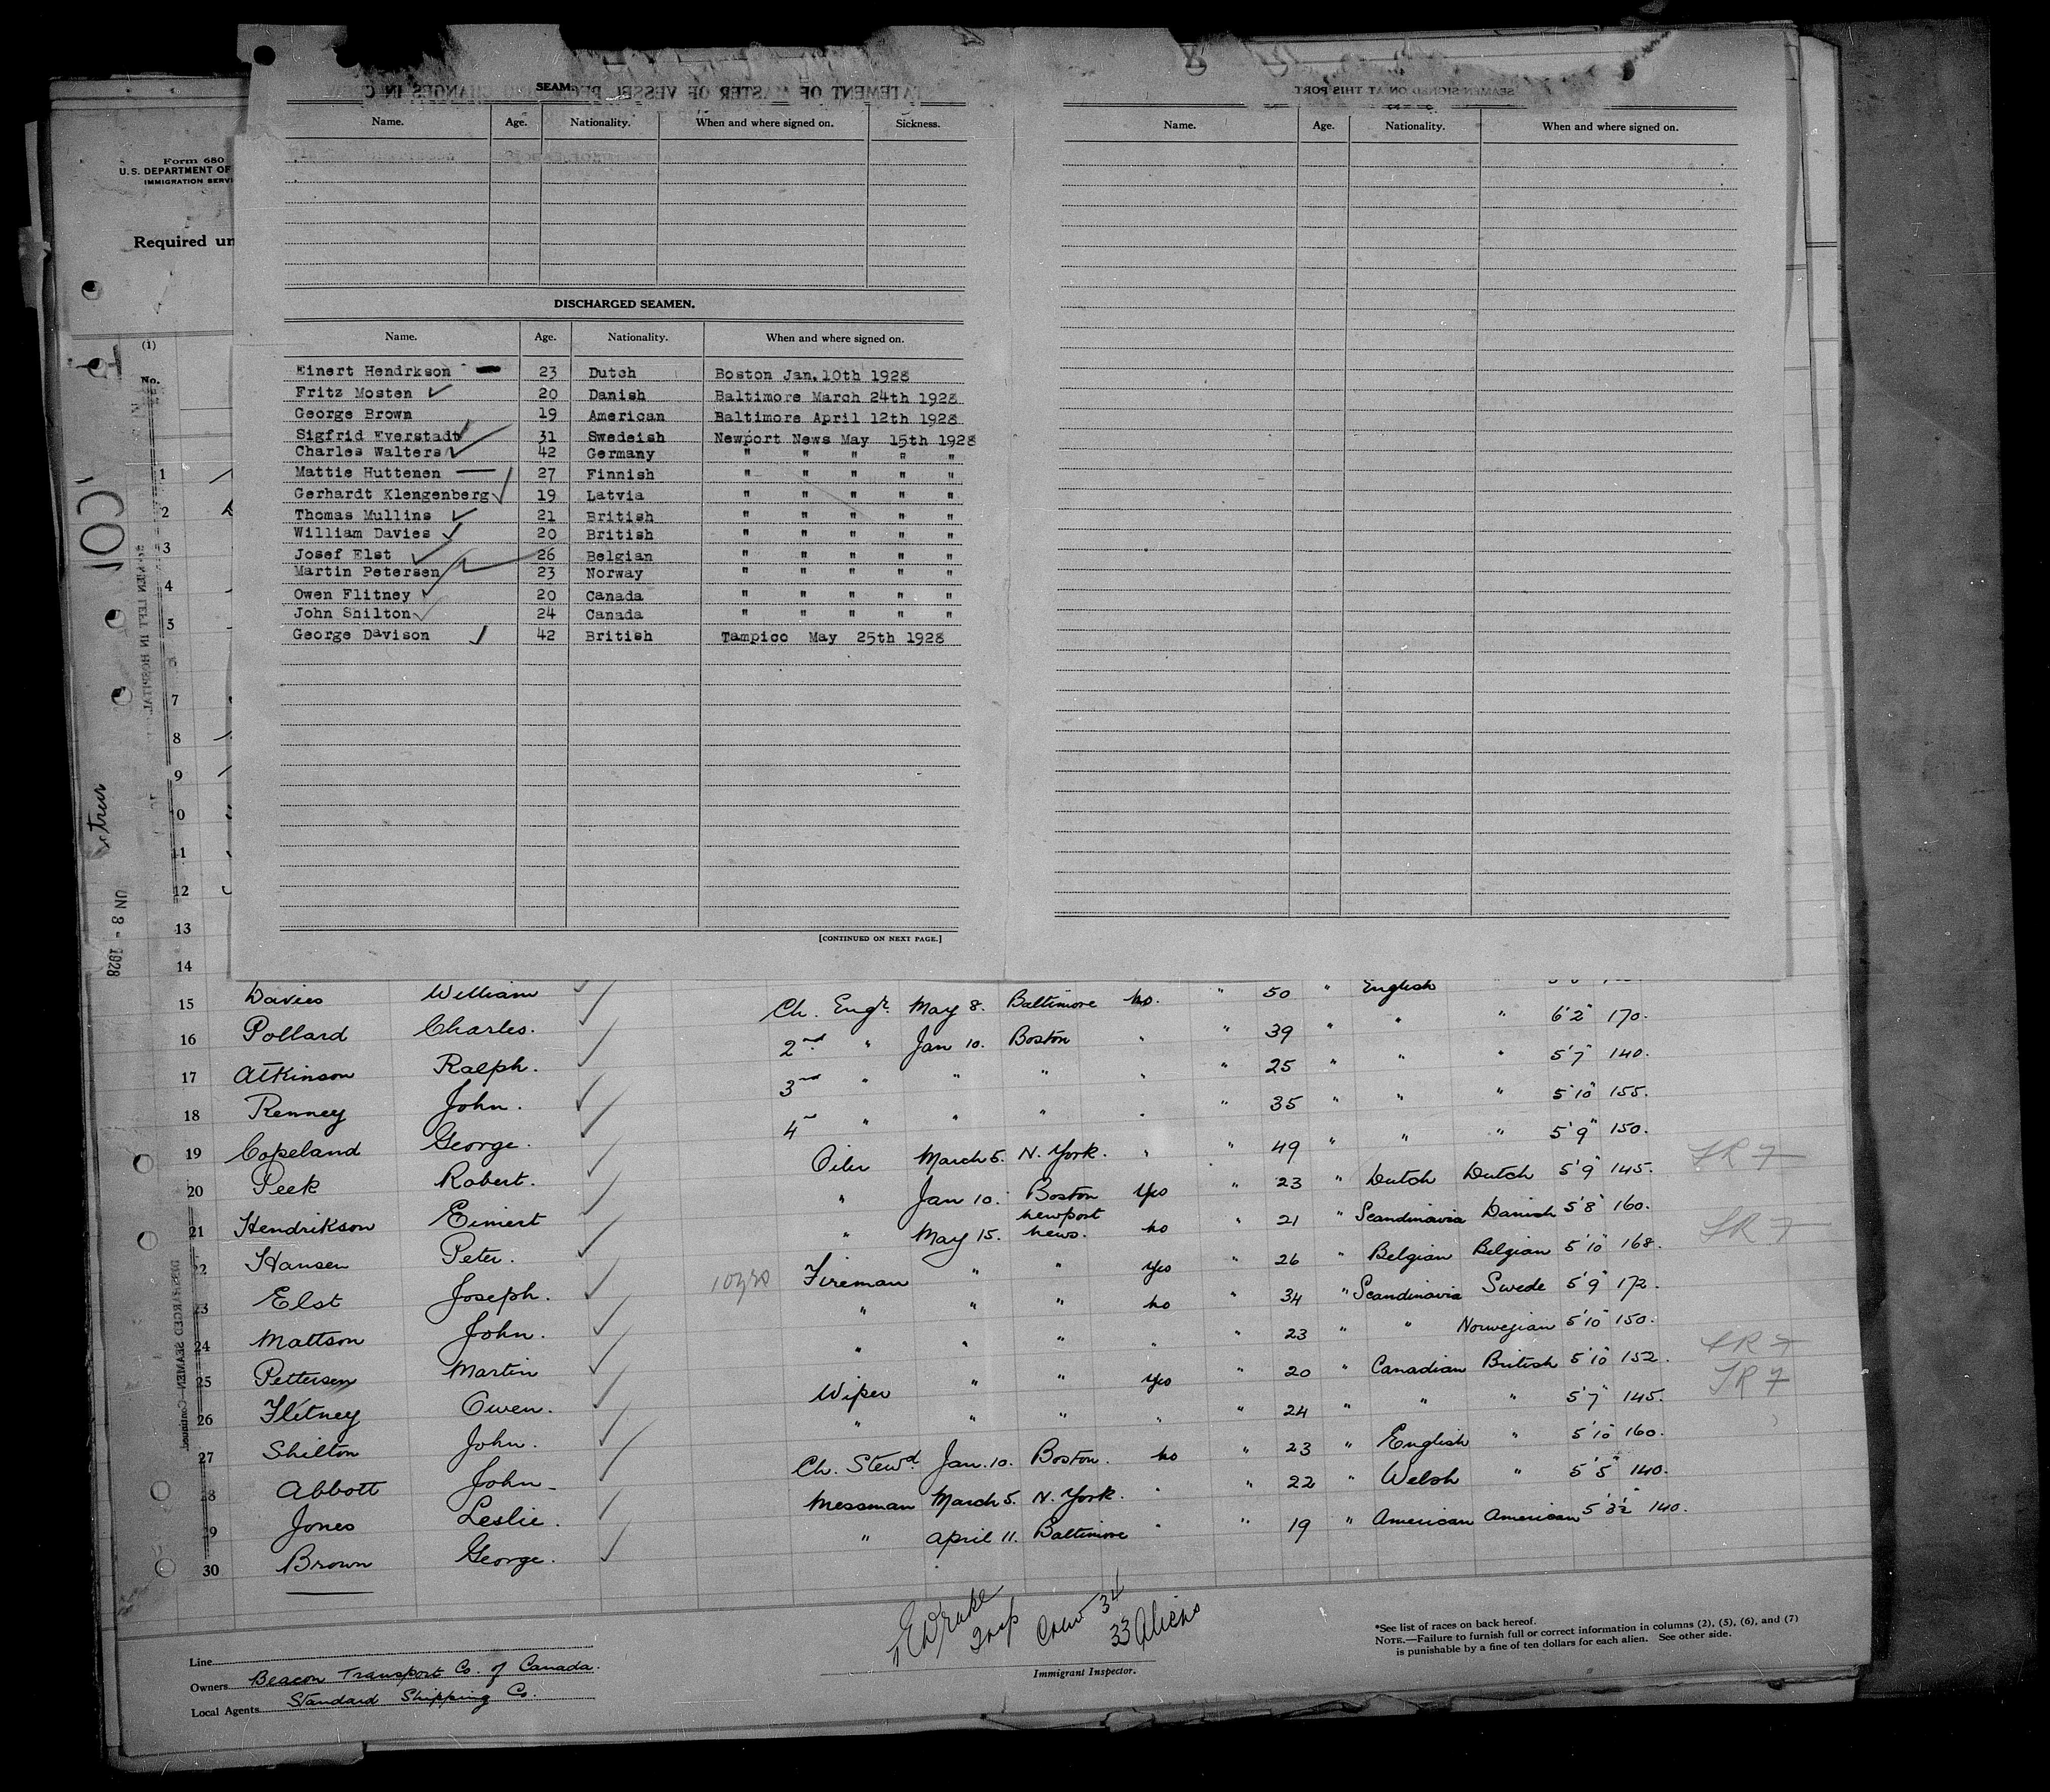 Form 680
U.S. DEPARTMENT OF
IMMIGRATION SERVI
Required un
(1)
No.
SEAM
STATEMENT OF MASTER OF VESSEL REGARDING CHANGES IN CREW
Name. Age. Nationality. When and where signed on. Sickness.
DISCHARGED SEAMEN.
Name. Age. Nationality. When and where signed on.
Einert Hendrkson 23 Dutch Boston Jan. 10th 1928
Fritz Mosten 20 Danish Baltimore March 24th 1928
George Brown 19 American Baltimore April 12th 1928
Sigfrid Everstadt 31 Swedeish Newport News May 15th 1928
Charles Walters 42 Germany " " " " "
Mattie Huttenen 27 Finnish " " " " "
Gerhardt Klengenberg 19 Latvia " " " " "
Thomas Mullins 21 British " " " " "
William Davies 20 British " " " " "
Josef Elst 26 Belgian " " " " "
Martin Petersen 23 Norway " " " " "
Owen Flitney 20 Canada " " " " "
John Shilton 24 Canada " " " " "
George Davison 42 British Tampico May 25th 1928
[CONTINUED ON NEXT PAGE.]
SEAMEN SIGNED ON AT THIS PORT
Name. Age. Nationality. When and where signed on.
1
2
3
4
5
6
7
8
9
10
11
12
13
14
UN 8 - 1928
SEAMEN LEFT IN HOSPITAL
DISCHARGED SEAMEN—Continued.
15 Davies William Ch. Engr. May 8. Baltimore no. " 50 " English "
16 Pollard Charles. 2nd " Jan 10. Boston " " 39 " " " 6'2" 170.
17 Atkinson Ralph. 3rd " " " " " 25 " " " 5'7" 140.
18 Renney John. 4 " " " " " 35 " " " 5'10" 155.
19 Copeland George. Oiler March 5. N. York. " " 49 " " " 5'9" 150.
20 Peek Robert. " Jan 10. Boston Yes " 23 " Dutch Dutch 5'9" 145.
21 Hendrikson Einert " May 15. Newport News. no " 21 " Scandinavia Danish 5'8" 160.
22 Hansen Peter. 10yrs Fireman " " Yes " 26 " Belgian Belgian 5'10" 168.
23 Elst Joseph. " " " no " 34 " Scandinavia Swede 5'9" 172.
24 Mattson John. " " " " " 23 " " Norwegian 5'10" 150.
25 Pettersen Martin Wiper " " Yes " 20 " Canadian British 5'10" 152.
26 Flitney Owen. " " " " " 24 " " " 5'7" 145.
27 Shilton John. Ch. Stewd. Jan. 10. Boston. no " 23 " English " 5'10" 160.
28 Abbott John Messman March 5. N. York. " " 22 " Welsh " 5'5" 140.
29 Jones Leslie. " April 11. Baltimore " " 19 " American American 5'3½" 140.
30 Brown George.
Insp Crew 34
33 Aliens
Immigrant Inspector.
Line
Owners Beacon Transport Co. of Canada.
Local Agents Standard Shipping Co.
*See list of races on back hereof.
NOTE.—Failure to furnish full or correct information in columns (2), (5), (6), and (7)
is punishable by a fine of ten dollars for each alien. See other side.